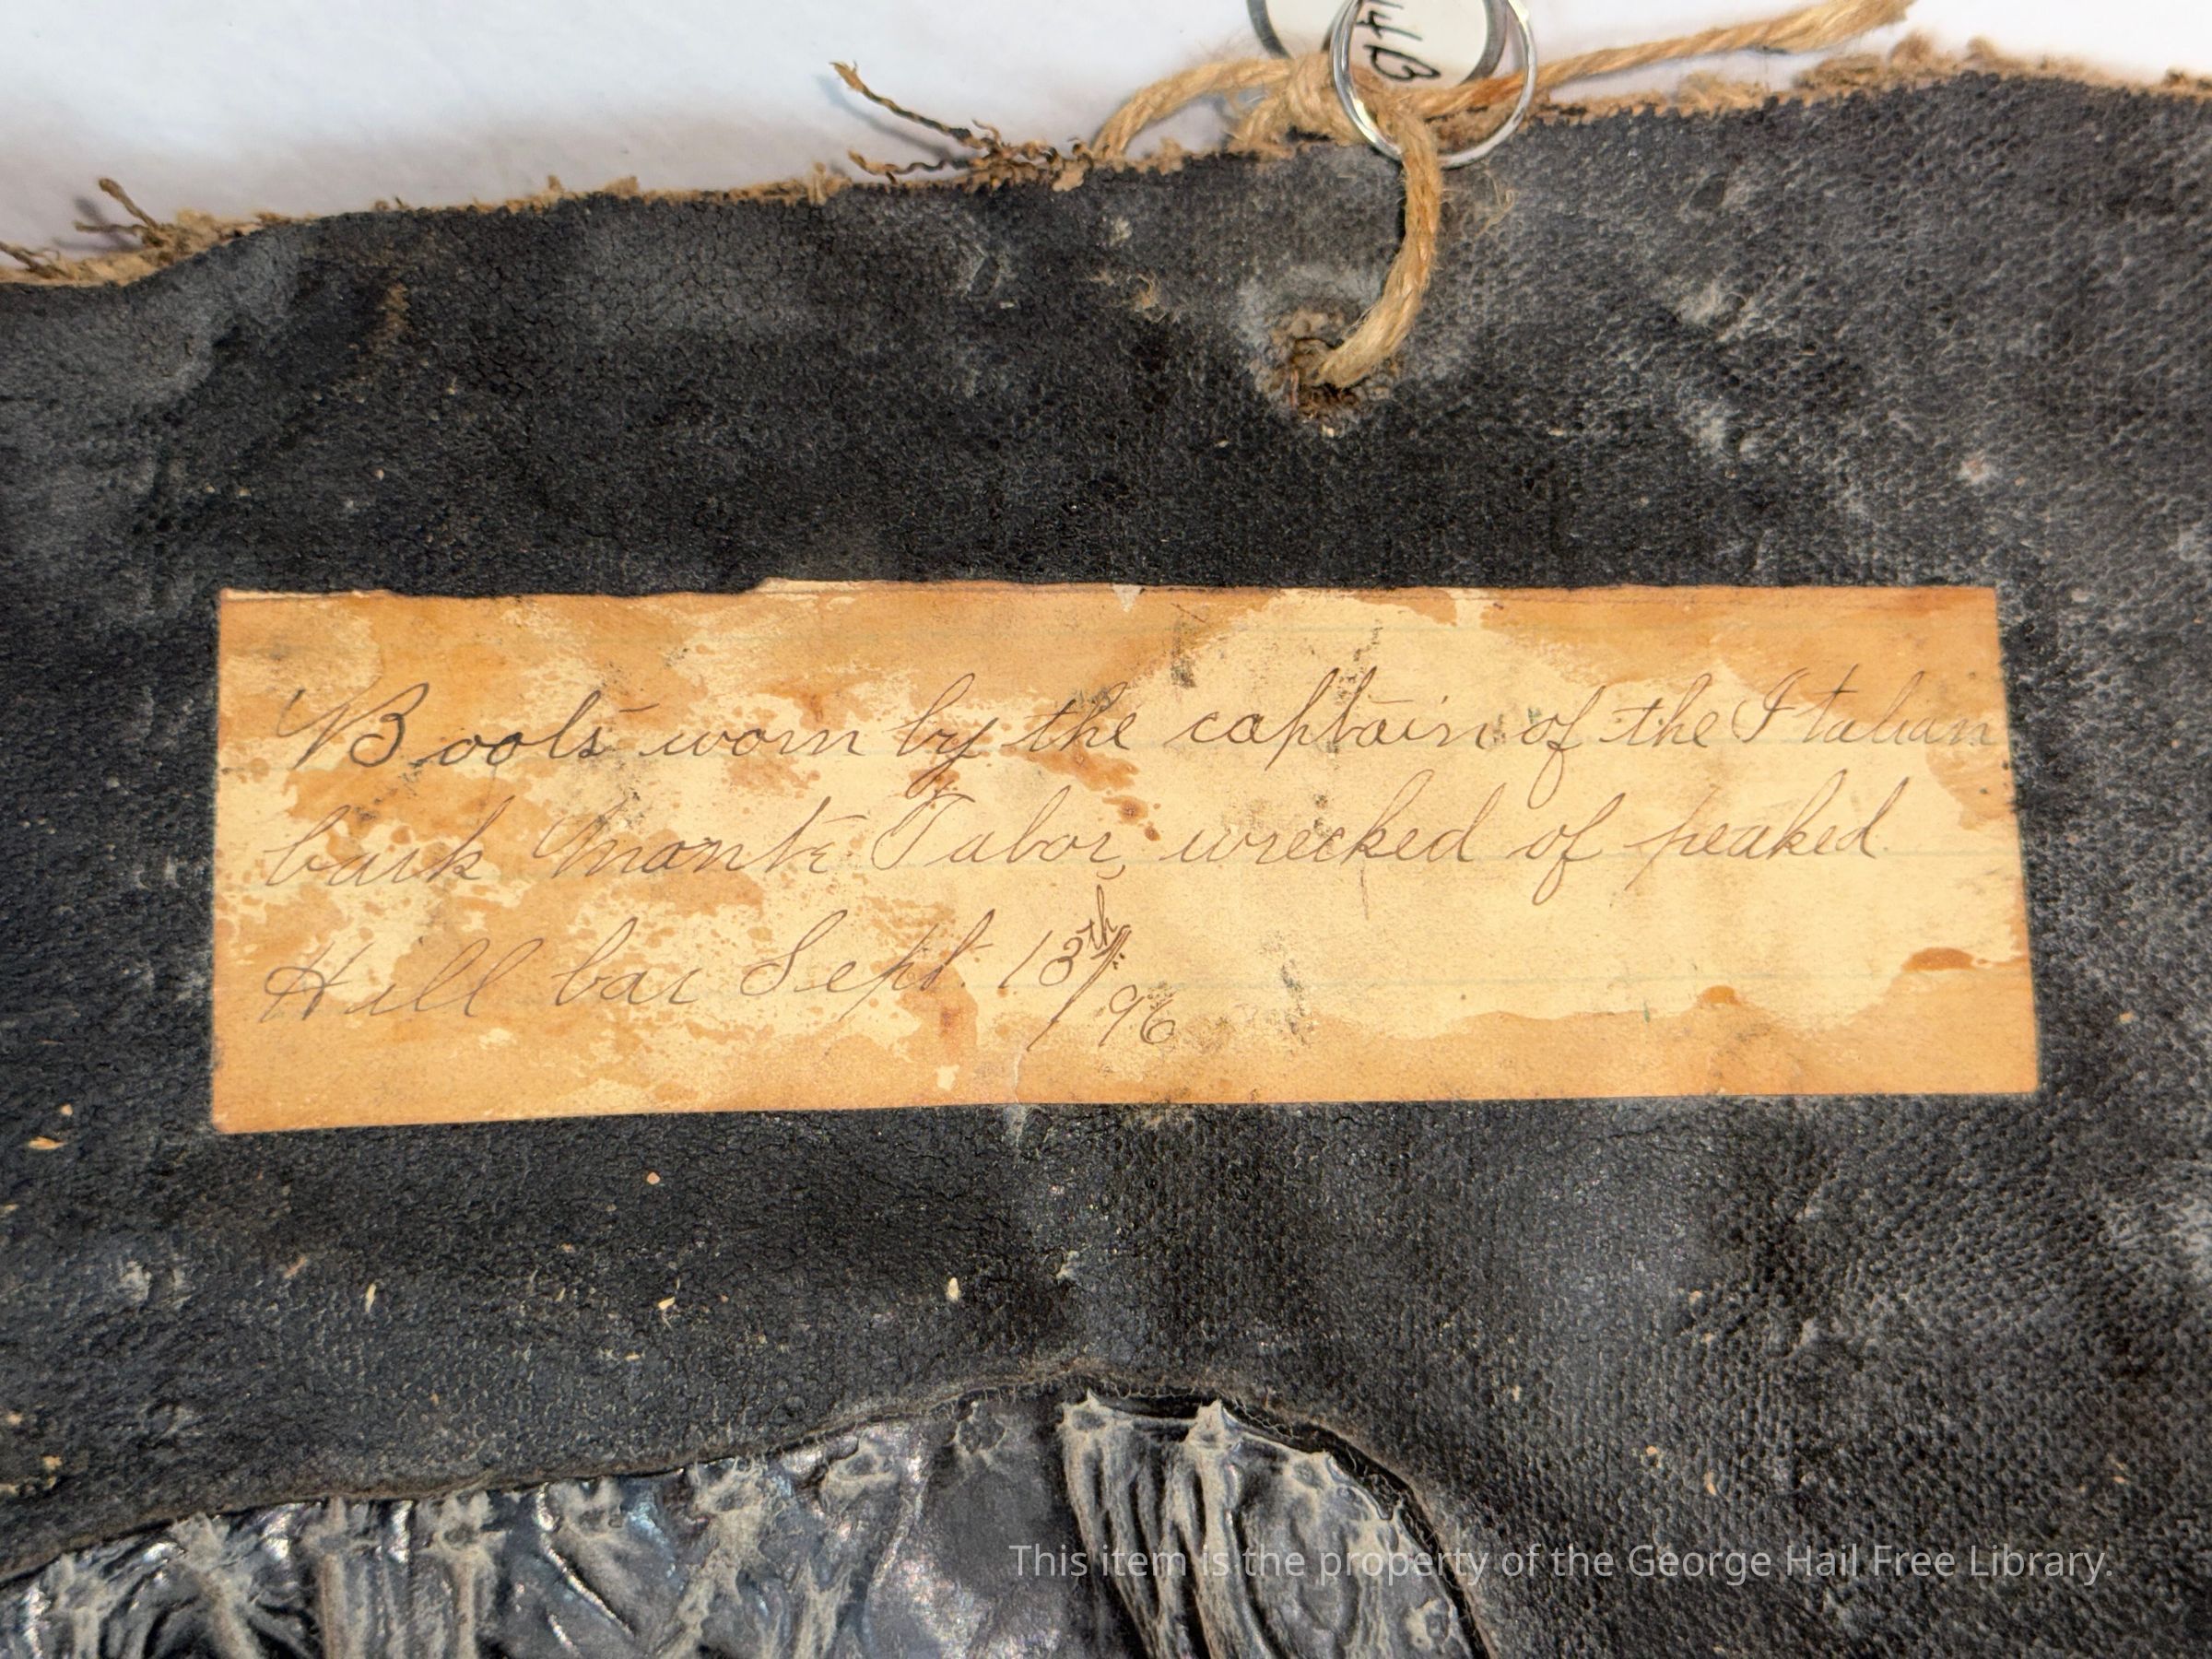 14B
Boots worn by the captain of the Italian
bark Monte Tabor, wrecked of peaked
Hill bar Sept. 13th/96
This item is the property of the George Hail Free Library.